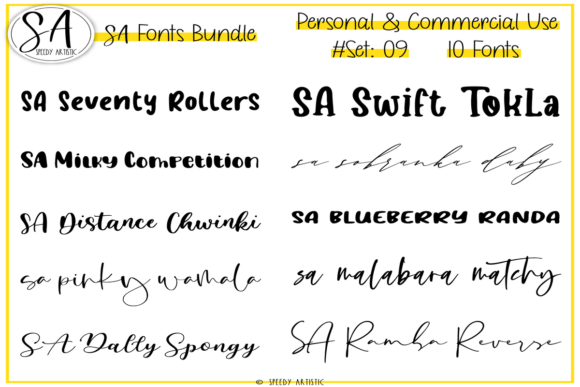 SA
SPEEDY ARTISTIC
SA Fonts Bundle
Personal & Commercial Use
#Set: 09 10 Fonts
SA Seventy Rollers
SA Milky Competition
SA Distance Chwinki
sa pinky wamala
SA Dally Spongy
SA Swift Tokla
sa sobranka daby
SA BLUEBERRY RANDA
sa malabara matchy
SA Ramba Reverse
© SPEEDY ARTISTIC